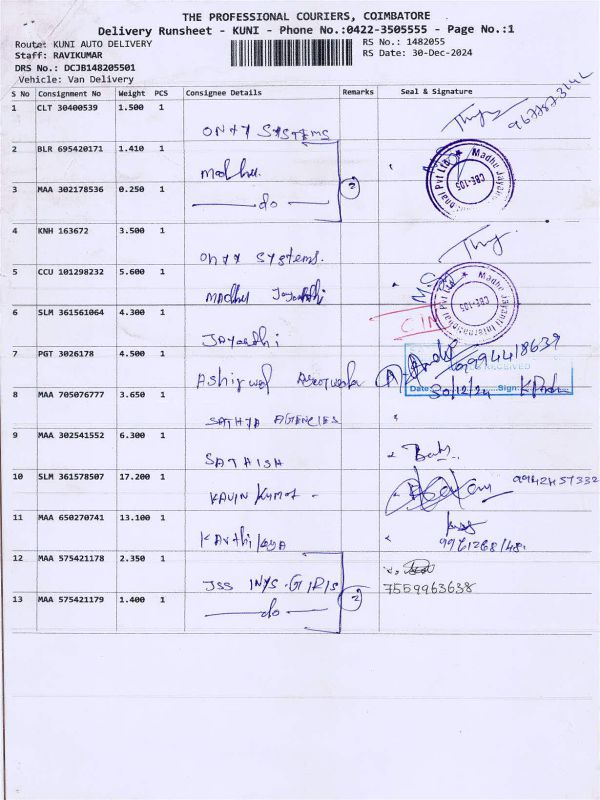 THE PROFESSIONAL COURIERS, COIMBATORE
Delivery Runsheet - KUNI - Phone No.:0422-3505555 - Page No.:1
Route: KUNI AUTO DELIVERY
RS No.: 1482055
Staff: RAVIKUMAR
RS Date: 30-Dec-2024
DRS No.: DCJB148205501
Vehicle: Van Delivery
S No Consignment No Weight PCS Consignee Details Remarks Seal & Signature
1 CLT 30400539 1.500 1
ONYX SYSTEMS
2 BLR 695420171 1.410 1
Madhu.
3 MAA 302178536 0.250 1
do
2
Madhu Jayanti International Pvt Ltd
CBE-105
4 KNH 163672 3.500 1
ONYX Systems.
5 CCU 101298232 5.600 1
Madhu Jayanthi
M.S
Madhu Jayanti International Pvt Ltd
CBE-105
6 SLM 361561064 4.300 1
Jayanthi
7 PGT 3026178 4.500 1
9994418639
RECEIVED
Date: 30/12/24 Sign:
8 MAA 705076777 3.650 1
SATHYA AGENCIES
9 MAA 302541552 6.300 1
SATHISH
10 SLM 361578507 17.200 1
KAVIN KUMAR
11 MAA 650270741 13.100 1
Karthikeya
12 MAA 575421178 2.350 1
7559963638
13 MAA 575421179 1.400 1
do
2